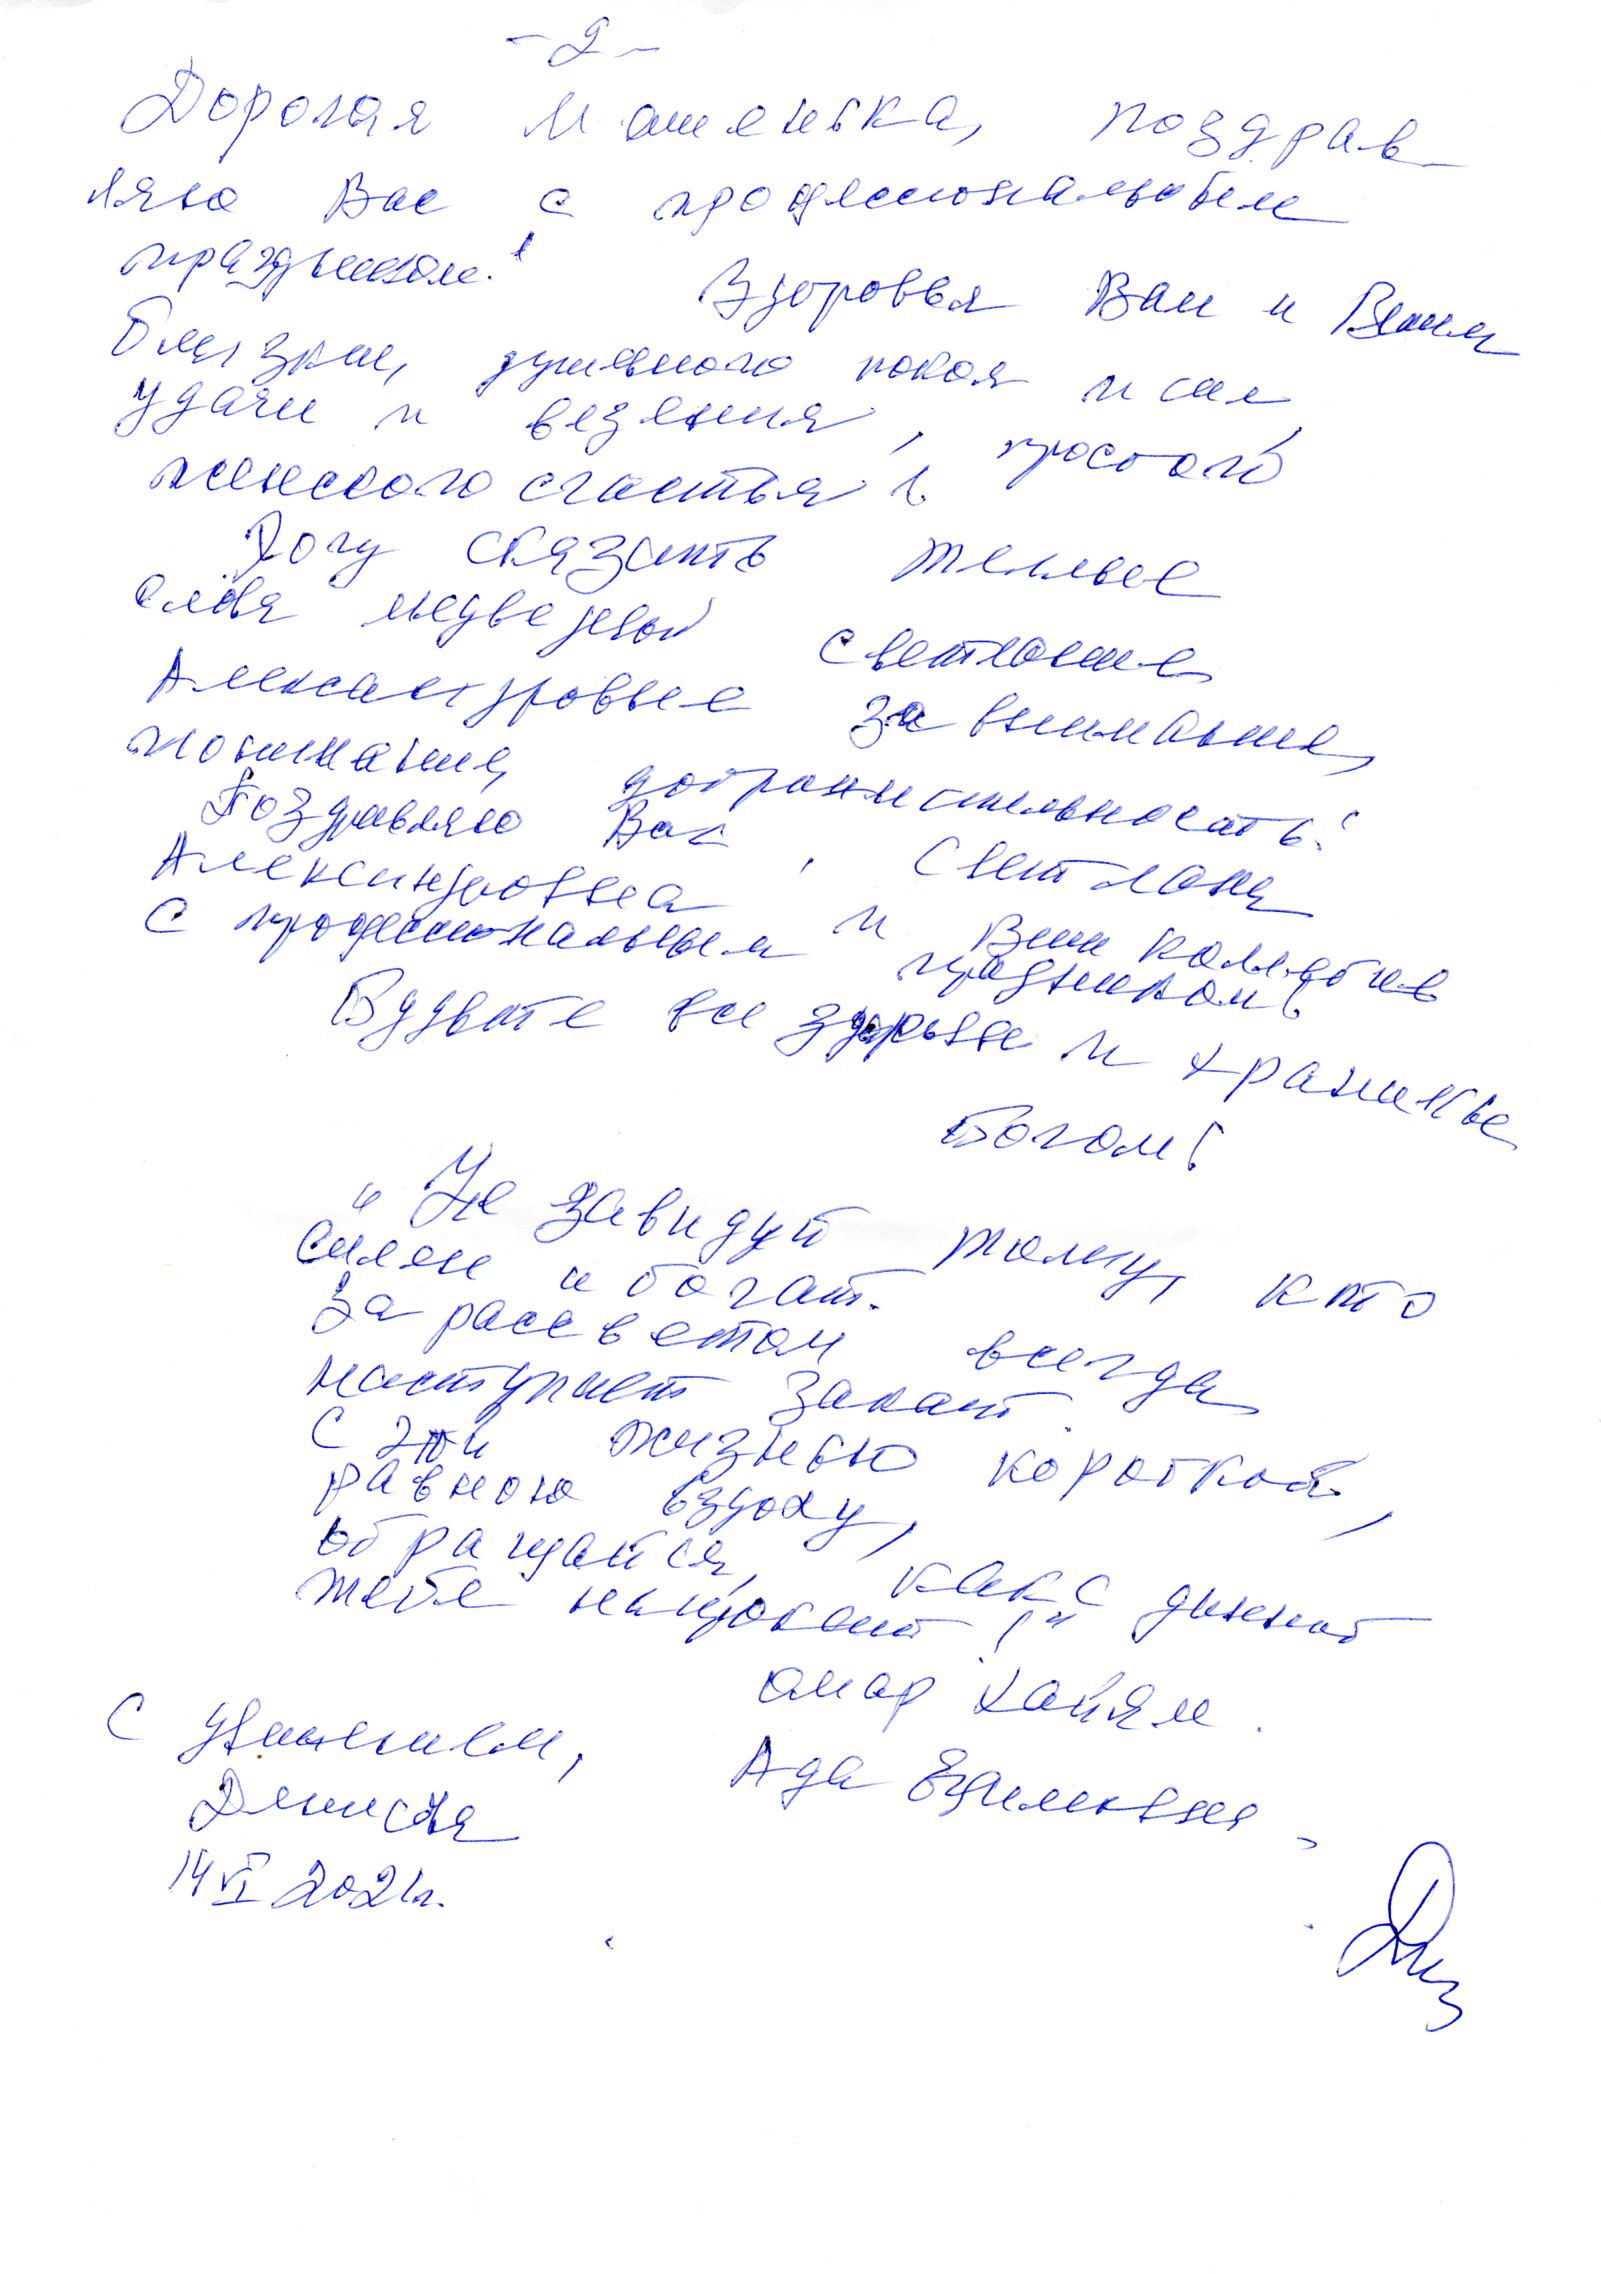 - 2 -
Дорогая Машенька, поздрав
ляю Вас с профессиональным
праздником!
Здоровья Вам и Вашим
близким, душевного покоя и сил,
удачи и везения, простого
женского счастья!
Хочу сказать теплые
слова Медведевой Светлане
Александровне за внимание,
понимание, доброжелательность!
Поздравляю Вас, Светлана
Александровна и Ваш коллектив
с профессиональным праздником!
Будьте все здоровы и хранимы
Богом!
"Не завидуй тому, кто
силен и богат.
За рассветом всегда
наступает закат.
С этой жизнью короткой,
равною вздоху,
обращайся, как с данной
тебе напрокат!"
Омар Хайям.
С уважением, Ада
Денисова
14 VI 2021г.